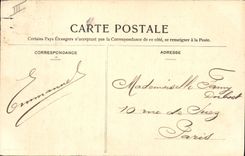 CARTE POSTALE
Certains Pays Étrangers n'acceptent pas la Correspondance de ce côté, se renseigner à la Poste.
CORRESPONDANCE
ADRESSE
Emmanuel
Mademoiselle Fanny
10 rue de Suez
Paris